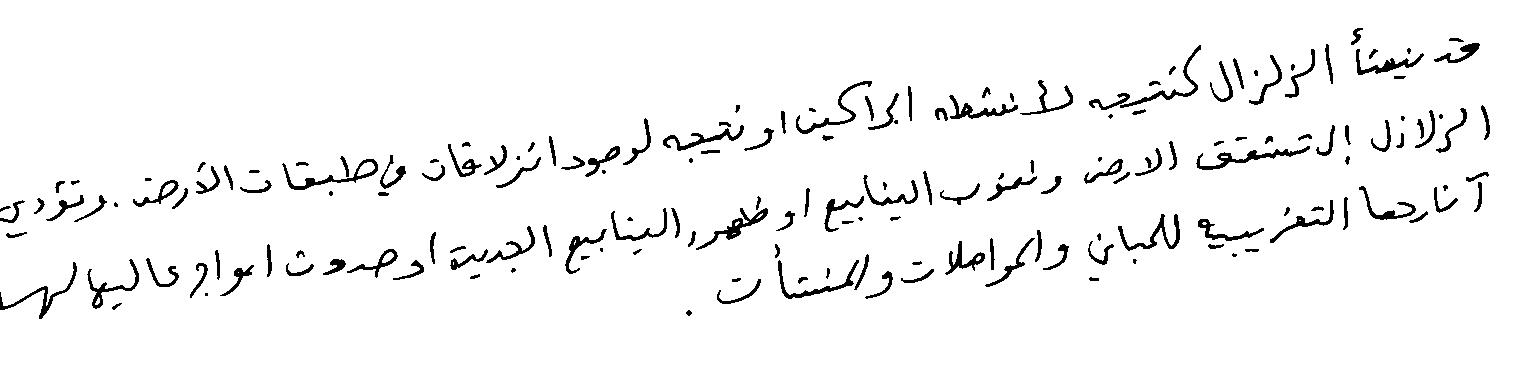 قد ينشأ الزلزال كنتيجه لأنشطه البراكين او نتيجه لوجود انزلاقات في طبقات الأرض . وتؤدي
الزلازل إلى تشقق الارض ونضوب الينابيع او ظهور الينابيع الجديدة او حدوث امواج عاليه
آثارها التخريبية للمباني والمواصلات والمنشأت .